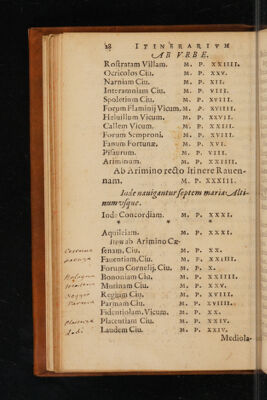 28 ITINERARIVM
AB VRBE.
Rostratam Villam. M. P. XXIIII.
Ocricolos Ciu. M. P. XXV.
Narniam Ciu. M. P. XII.
Interamniam Ciu. M. P. VIII.
Spoletium Ciu. M. P. XVIII.
Forum Flaminij Vicum. M. P. XVIIII.
Heluillum Vicum. M. P. XXVII.
Callem Vicum. M. P. XXIII.
Forum Semproni. M. P. XVIII.
Fanum Fortunæ. M. P. XVI.
Pisaurum. M. P. VIII.
Ariminum. M. P. XXIIII.
Ab Arimino recto Itinere Rauen-
nam. M. P. XXXIII.
Inde nauigantur septem maria Alti-
num vsque.
Inde Concordiam. M. P. XXXI.
* * *
Aquileiam. M. P. XXXI.
Item ab Arimino Cæ-
senam. Ciu. M. P. XX.
Fauentiam. Ciu. M. P. XXIIII.
Forum Cornelij. Ciu. M. P. X.
Bononiam Ciu. M. P. XXIIII.
Mutinam Ciu. M. P. XXV.
Regium Ciu. M. P. XVIII.
Parmam Ciu. M. P. XVIII.
Fidentiolam. Vicum. M. P. XX.
Placentiam Ciu. M. P. XXIV.
Laudem Ciu. M. P. XXIV.
Mediola-